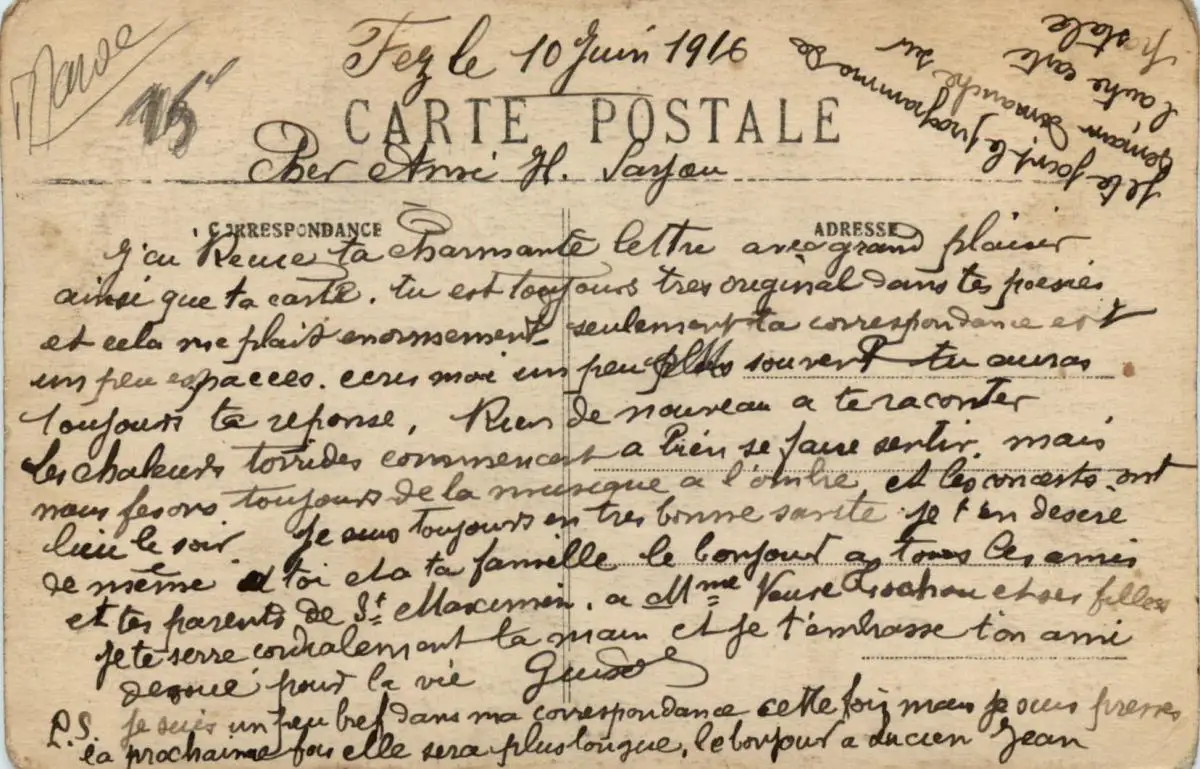 Fez le 10 Juin 1916
CARTE POSTALE
Cher Ami H.
CORRESPONDANCE
ADRESSE
J'ai Recue ta charmante lettre avec grand plaisir
ainsi que ta carte. tu est toujours tres original dans tes poesies
et cela me plait enormement seulement ta correspondance est
un peu espacees. ecris moi un peu plus souvent tu auras
toujours ta reponse. Rien de nouveau a te raconter
les chaleurs torrides commencent a bien se faire sentir. mais
nous fesons toujours de la musique a l'ombre et les concerts ont
lieu le soir. Je suis toujours en tres bonne sante je t'en desire
de même a toi et a ta famille le bonjour a tous les amis
et tes parents de St Maximin. a Mme Veuve et ses filles
Je te serre cordialement la main et je t'embrasse ton ami
devoué pour la vie
P.S. je suis un peu bref dans ma correspondance cette fois mais je suis presses
la prochaine fois elle sera plus longue, le bonjour a Lucien Jean
Je te joint le programme de
demanche sur
l'autre carte
postale